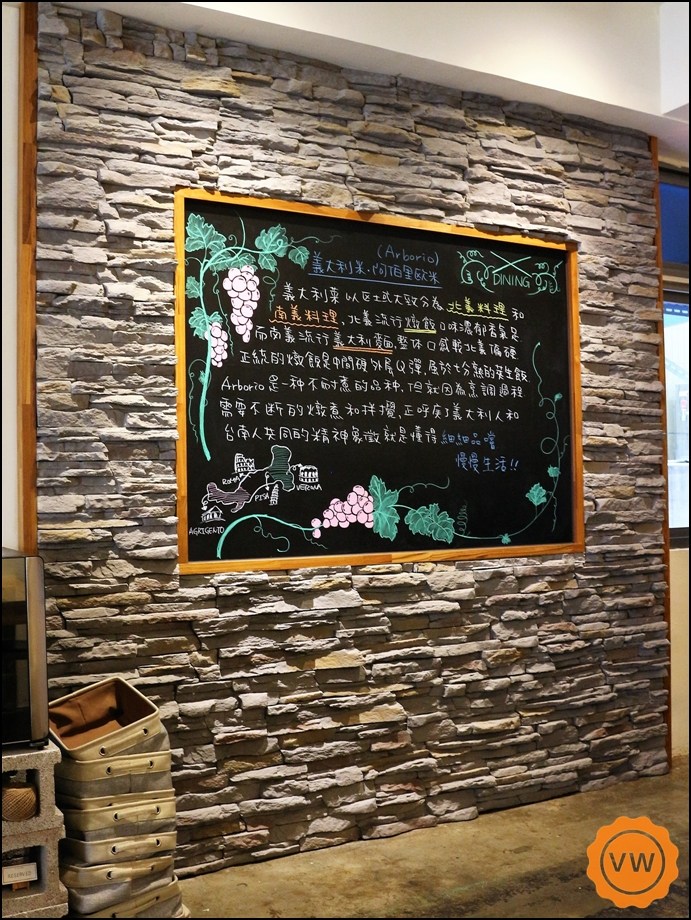 (Arborio)
義大利米·阿伯里歐米
DINING
義大利菜以區域大致分為 北義料理 和
南義料理, 北義流行燉飯口味濃郁香氣足
而南義流行義大利麵,整体口感較北義偏硬
正統的燉飯是中間硬外層Q彈,屬於七分熟的夾生飯
Arborio是一种不耐煮的品种,但就因為烹調過程
需要不断的燉煮和拌攪,正呼應了義大利人和
台南人共同的精神象徵就是懂得細細品嚐
慢慢生活!!
ROMA
PISA
VERONA
AGRIGENTO
VW